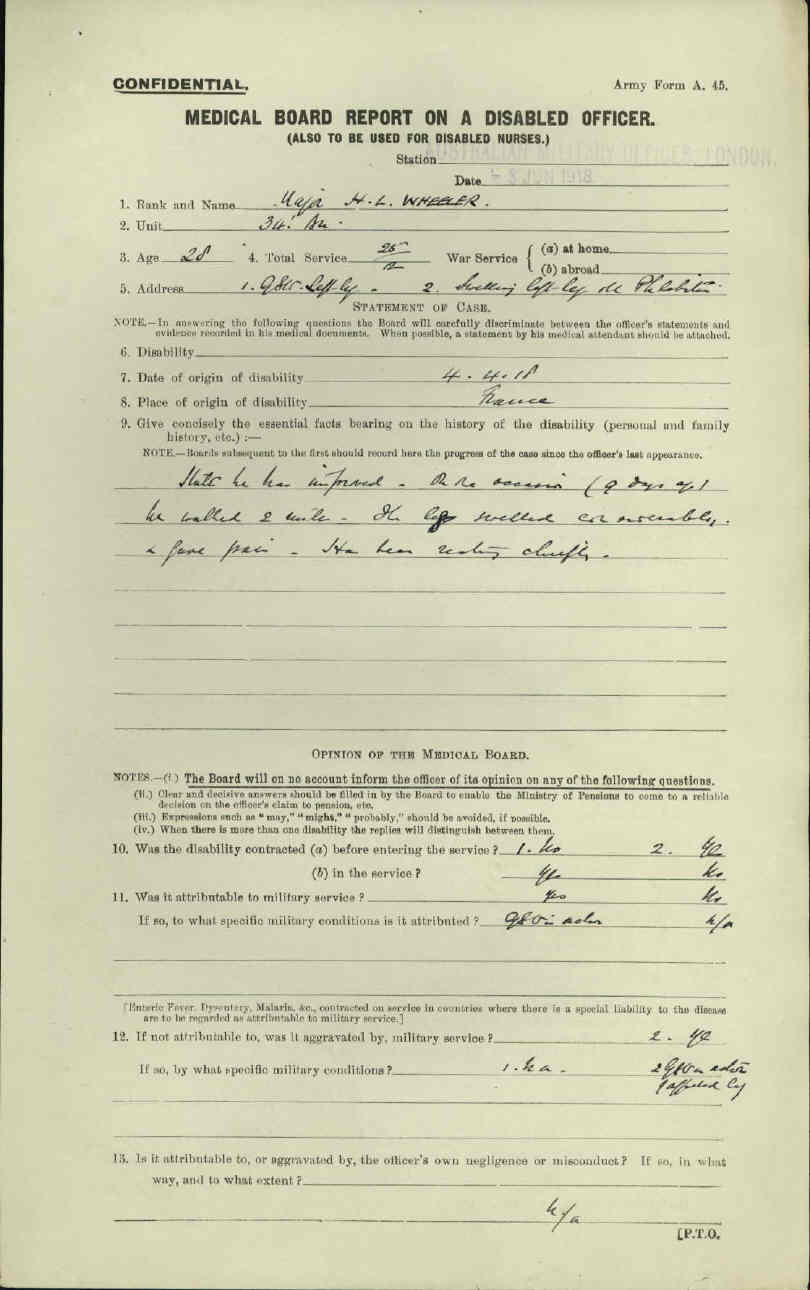 CONFIDENTIAL.
Army Form A. 45.
MEDICAL BOARD REPORT ON A DISABLED OFFICER.
(ALSO TO BE USED FOR DISABLED NURSES.)
Station AUSTRALIAN MILITARY OFFICES, LONDON.
Date 3 JUN 1918
1. Rank and Name Major H. L. WHEELER.
2. Unit 34. Bn.
3. Age 28 4. Total Service 25/12 War Service { (a) at home
(b) abroad
5. Address 1. GSW. Left leg. 2. Swelling left leg old Phlebitis.
STATEMENT OF CASE.
NOTE.—In answering the following questions the Board will carefully discriminate between the officer's statements and
evidence recorded in his medical documents. When possible, a statement by his medical attendant should be attached.
6. Disability
7. Date of origin of disability 4. 4. 18
8. Place of origin of disability France
9. Give concisely the essential facts bearing on the history of the disability (personal and family
history, etc.) :—
NOTE.—Boards subsequent to the first should record here the progress of the case since the officer's last appearance.
States he has improved - On one occasion (9 days ago)
he walked 2 mile - The leg swelled considerably.
& gave pain - Has been resting chiefly.
OPINION OF THE MEDICAL BOARD.
NOTES.—(i.) The Board will on no account inform the officer of its opinion on any of the following questions.
(ii.) Clear and decisive answers should be filled in by the Board to enable the Ministry of Pensions to come to a reliable
decision on the officer's claim to pension, etc.
(iii.) Expressions such as "may," "might," "probably," should be avoided, if possible.
(iv.) When there is more than one disability the replies will distinguish between them.
10. Was the disability contracted (a) before entering the service ? 1. No 2. Yes
(b) in the service ? Yes No
11. Was it attributable to military service ? Yes No
If so, to what specific military conditions is it attributed ? GSW in action n/a
[Enteric Fever, Dysentery, Malaria, &c., contracted on service in countries where there is a special liability to the disease
are to be regarded as attributable to military service.]
12. If not attributable to, was it aggravated by, military service ? 2. Yes
If so, by what specific military conditions ? 1. n a. 2 GSW in action
of affected leg
13. Is it attributable to, or aggravated by, the officer's own negligence or misconduct ? If so, in what
way, and to what extent ?
n/a
[P.T.O.